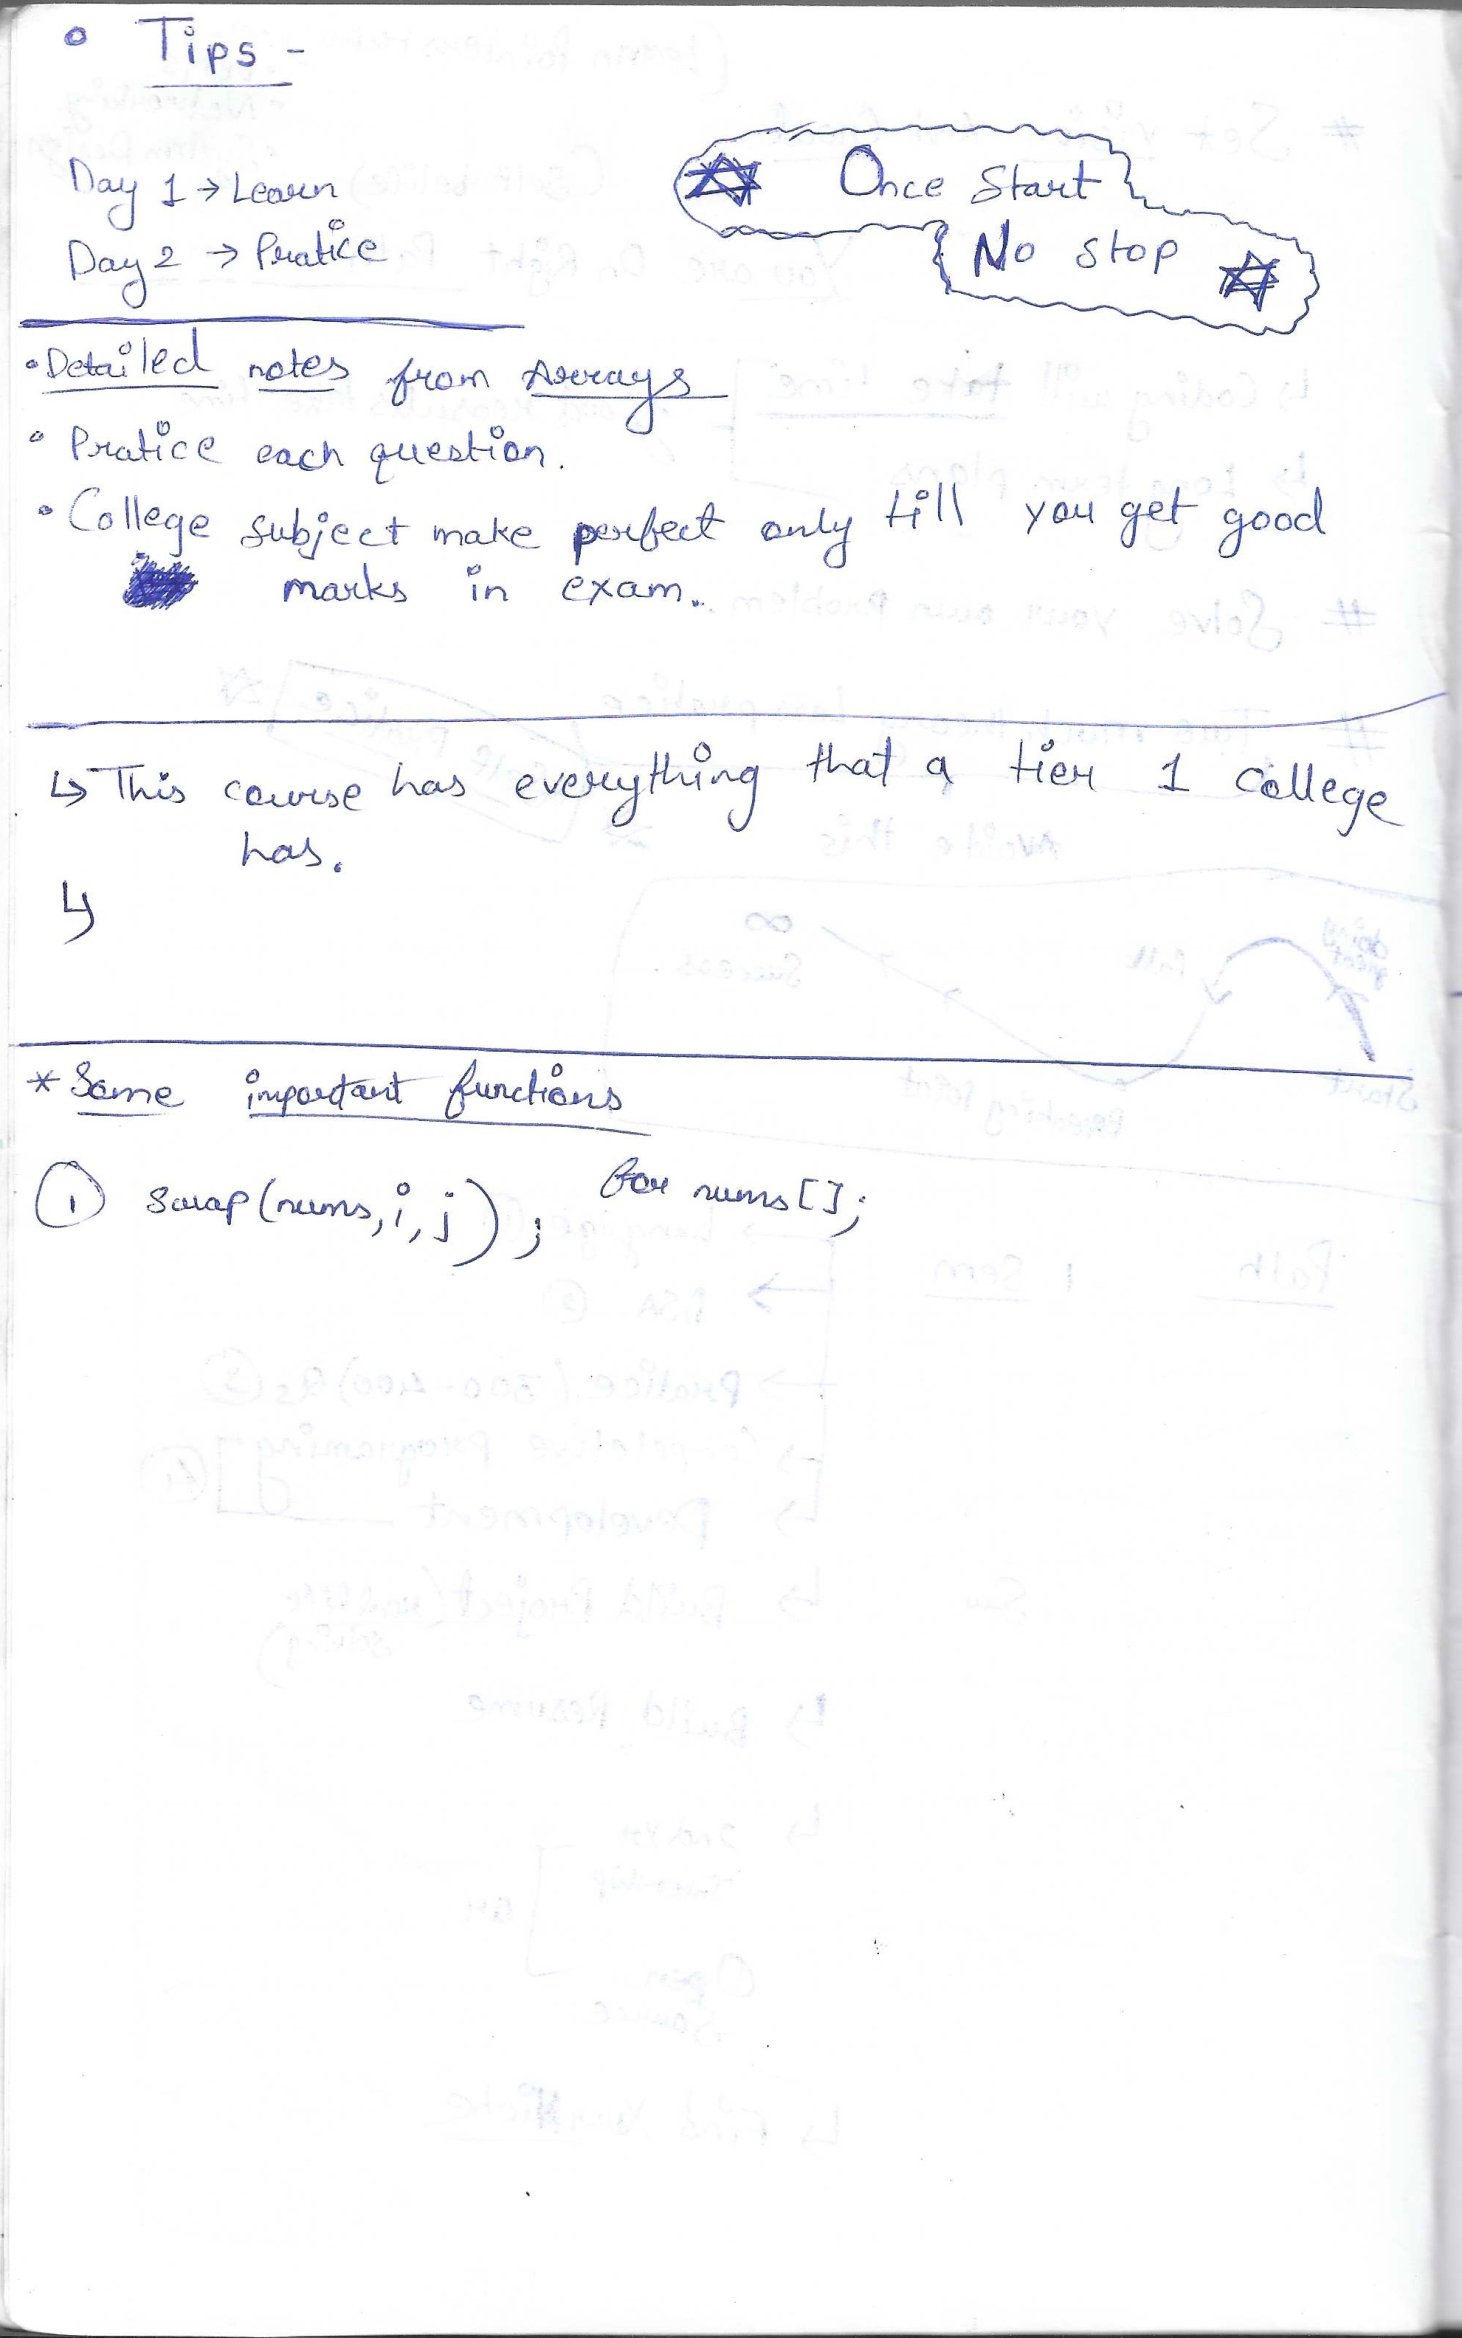 Tips -
Day 1 → Learn
Day 2 → Pratice
Once Start
No stop
• Detailed notes from Arrays
• Pratice each question.
• College subject make perfect only till you get good
marks in exam.
↳ This course has everything that a tier 1 college
has.
↳
* Some important functions
① swap(nums,i,j); for nums[];